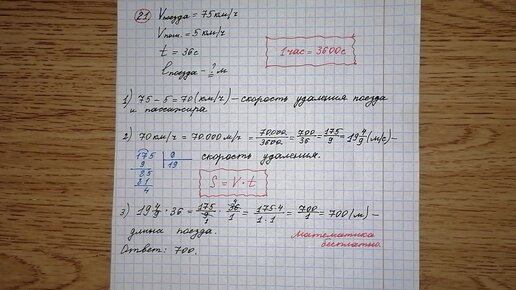 21. Vпоезда = 75 км/ч
Vпеш. = 5 км/ч
t = 36 с
lпоезда - ? м
1 час = 3600 с
1) 75 - 5 = 70 (км/ч) - скорость удаления поезда
и пассажира.
2) 70 км/ч = 70.000 м/ч = 70000/3600 = 700/36 = 175/9 = 19 4/9 (м/с) -
скорость удаления.
175 | 9
9 | 19
85
81
4
S = V · t
3) 19 4/9 · 36 = 175/9 · 36/1 = 175·4/1·1 = 700/1 = 700 (м) -
длина поезда.
Ответ: 700.
Математика
бесплатно